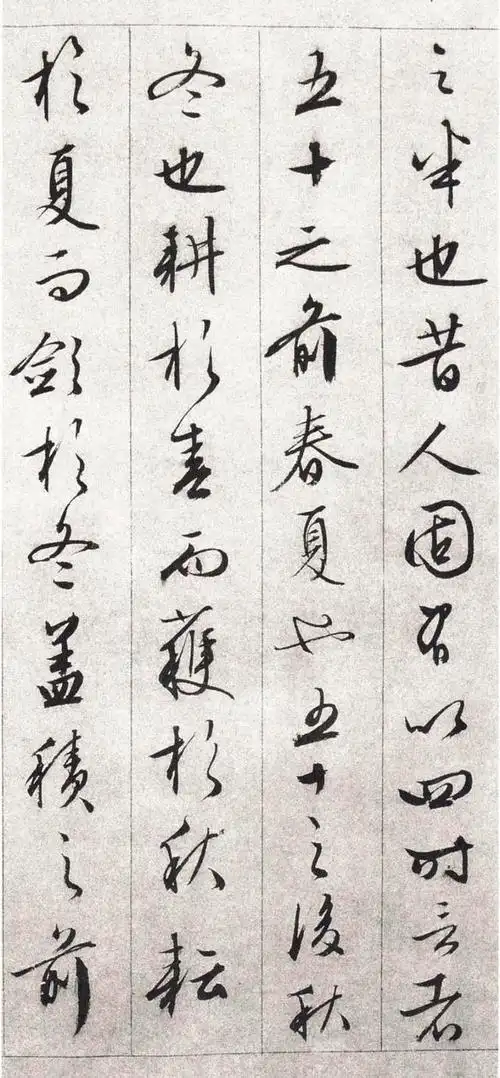 之半也昔人固有以四时言者
五十之前春夏也五十之後秋
冬也耕於春而穫於秋耘
於夏而斂於冬蓋積之前